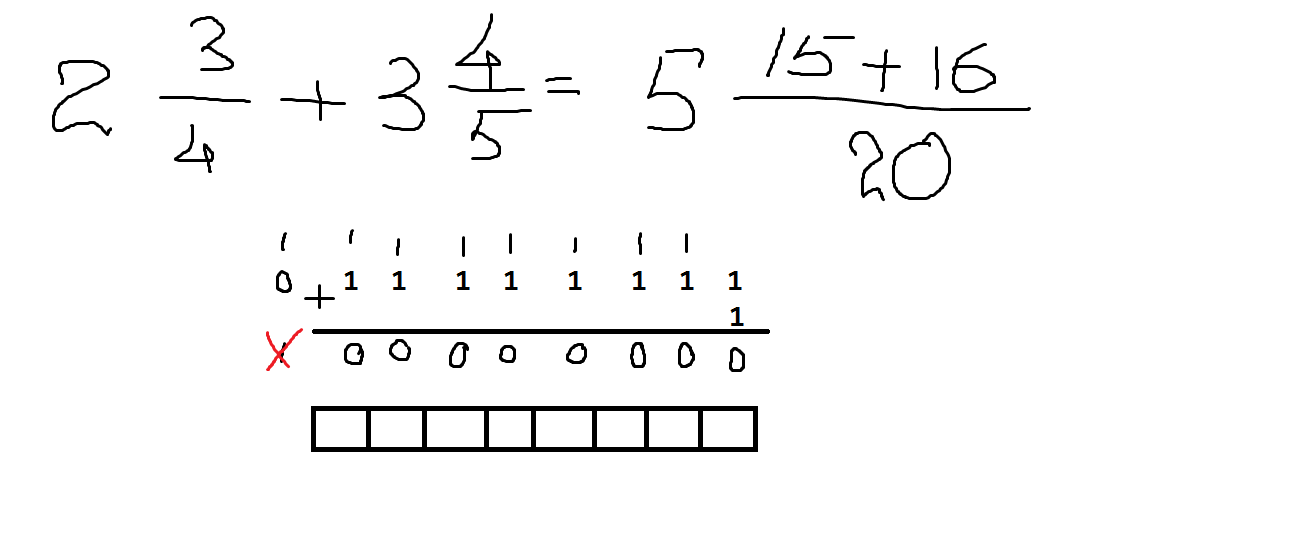 2 3/4 + 3 4/5 = 5 15+16/20
1 1 1 1 1 1 1 1
0 + 1 1 1 1 1 1 1 1
1
1 0 0 0 0 0 0 0 0